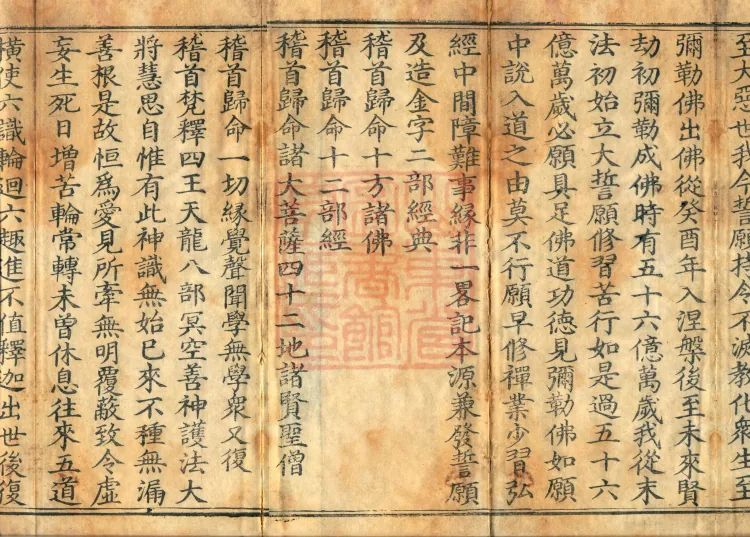 至大惡世我今誓願持令不滅教化衆生至
彌勒佛出佛從癸酉年入涅槃後至未來賢
劫初彌勒成佛時有五十六億萬歲我從末
法初始立大誓願修習苦行如是過五十六
億萬歲必願具足佛道功德見彌勒佛如願
中說入道之由莫不行願早修禪業少習弘
經中間障難事緣非一畧記本源兼發誓願
及造金字二部經典
稽首歸命十方諸佛
稽首歸命十二部經
稽首歸命諸大菩薩四十二地諸賢聖僧
稽首歸命一切緣覺聲聞學無學衆又復
稽首梵釋四王天龍八部冥空善神護法大
將慧思自惟有此神識無始已來不種無漏
善根是故恒爲愛見所牽無明覆蔽致令虛
妄生死日增苦輪常轉未曾休息往來五道
橫使六識輪迴六趣進不值釋迦出世後復